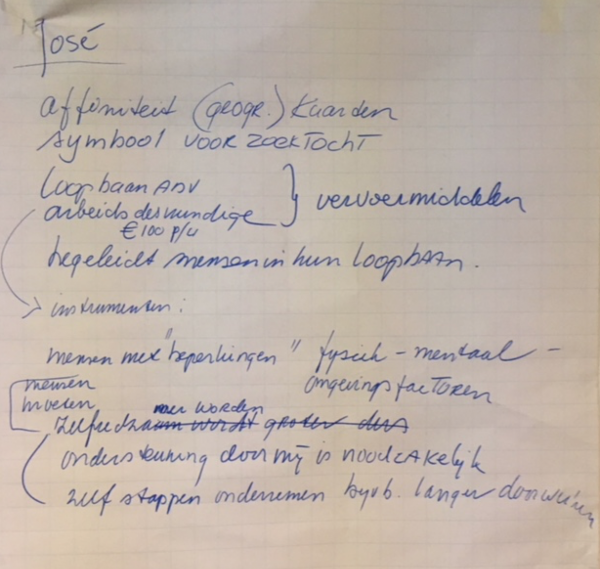 José
affiniteit (geogr.) kaarden
symbool voor zoektocht
loopbaan ADV
arbeidsdeskundige } vervoermiddelen
€100 p/u
begeleidt mensen in hun loopbaan.
instrumenten:
mensen met "beperkingen" fysiek - mentaal -
omgevingsfactoren
mensen
moeten
meer worden
zelfredzaam wordt groter door
ondersteuning door mij is noodzakelijk
zelf stappen ondernemen bijvb. langer doorwerken